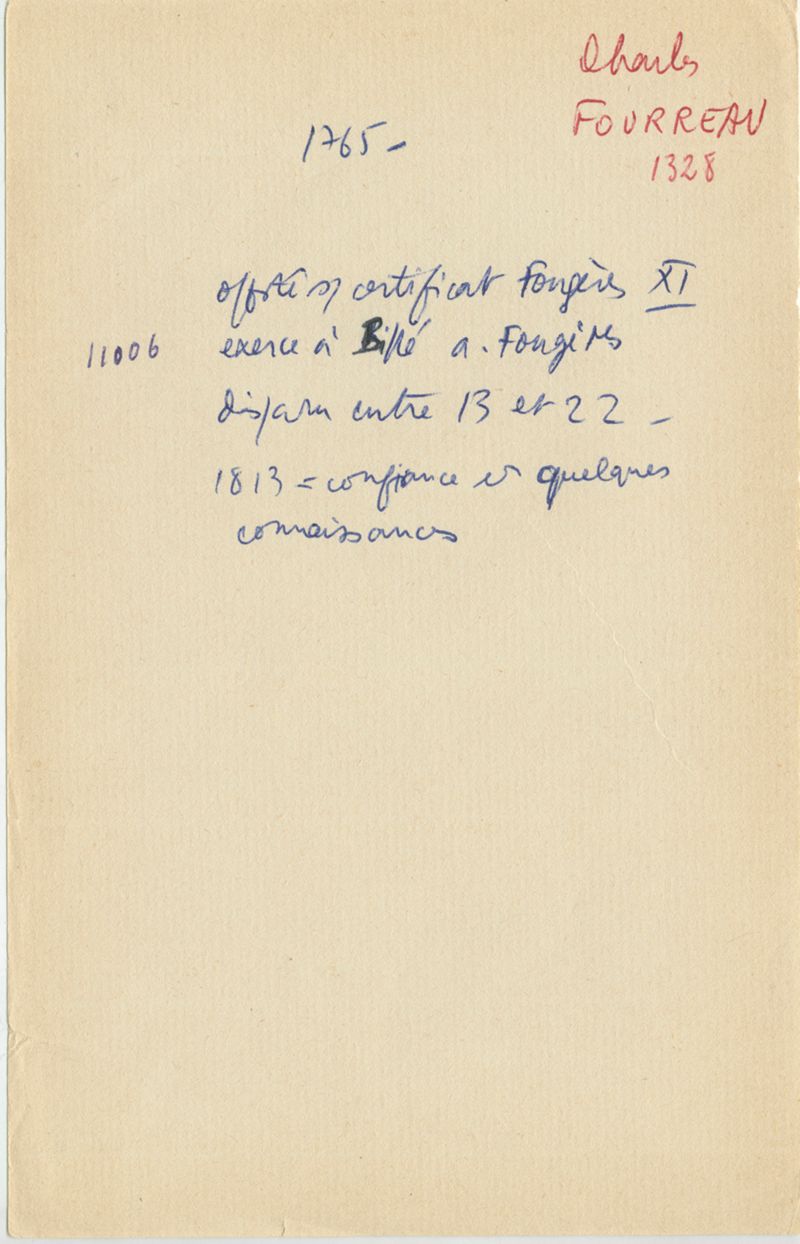 Charles
FOURREAU
1328
1765 -
certificat Fougères XI
11006 exerce à Billé a. Fougères
disparu entre 13 et 22 -
1813 = confiance et quelques
connaissances